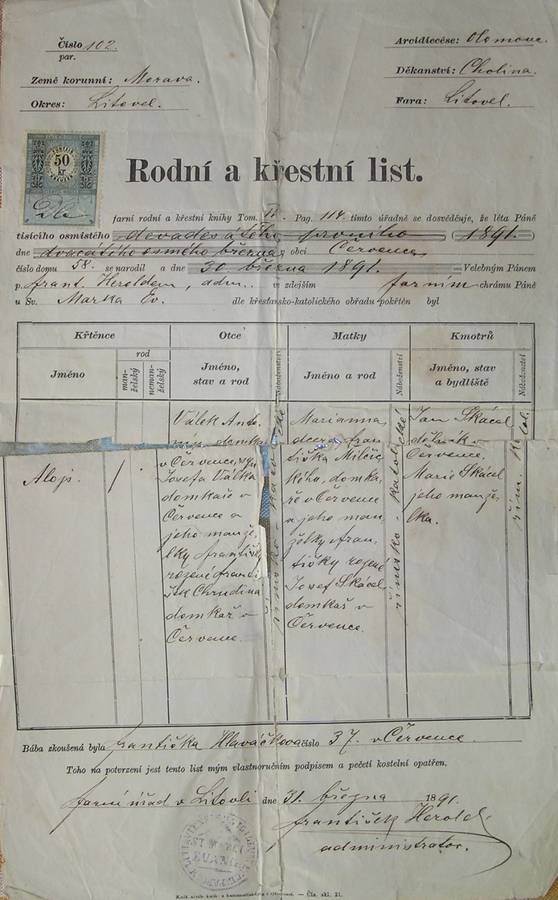 Číslo 102.
par.
Země korunní: Morava.
Okres: Litovel.
Arcidiecése: Olomouc.
Děkanství: Cholina.
Fara: Litovel.
50
kr
Rodní a křestní list.
farní rodní a křestní knihy Tom. Pag. 114. tímto úřadně se dosvědčuje, že léta Páně
tisícího osmistého devadesátého prvního (1891.)
dne dvacátého osmého března obci Července
číslo domu 58. se narodil a dne 30 března 1891. Velebným Pánem
p. Frant. Heroldem, adm. v zdejším farním chrámu Páně
u Sv. Marka Ev. dle křesťansko-katolického obřadu pokřtěn byl
Křtěnce Otce Matky Kmotrů
Jméno
rod
man-
želský
neman-
želský
Jméno,
stav a rod
Náboženství
Jméno a rod
Náboženství
Jméno, stav
a bydliště
Náboženství
Alojs.
1.
Válek Anto-
domkař
v Července, syn
Josefa Válka
domkaře v
Července a
jeho manžel-
ky Františky
rozené Franti-
Chrudina
domkař v
Července.
římsko-katolické
Marianna
dcera Fran-
tiška
domka-
ře v Července
a jeho man-
želky Fran-
tišky rozené
Josef Skácel
domkař v
Července.
římsko-katolické
Jan Skácel
v
Července.
Marie Skácel
jeho manžel-
ka.
řím. katol.
Bába zkoušená byla Františka Hlaváčkova číslo 37. v Července.
Toho na potvrzení jest tento list mým vlastnoručním podpisem a pečetí kostelní opatřen.
farní úřad v Litovli dne 31. března 1891.
František Herold
administrator.
EVANG